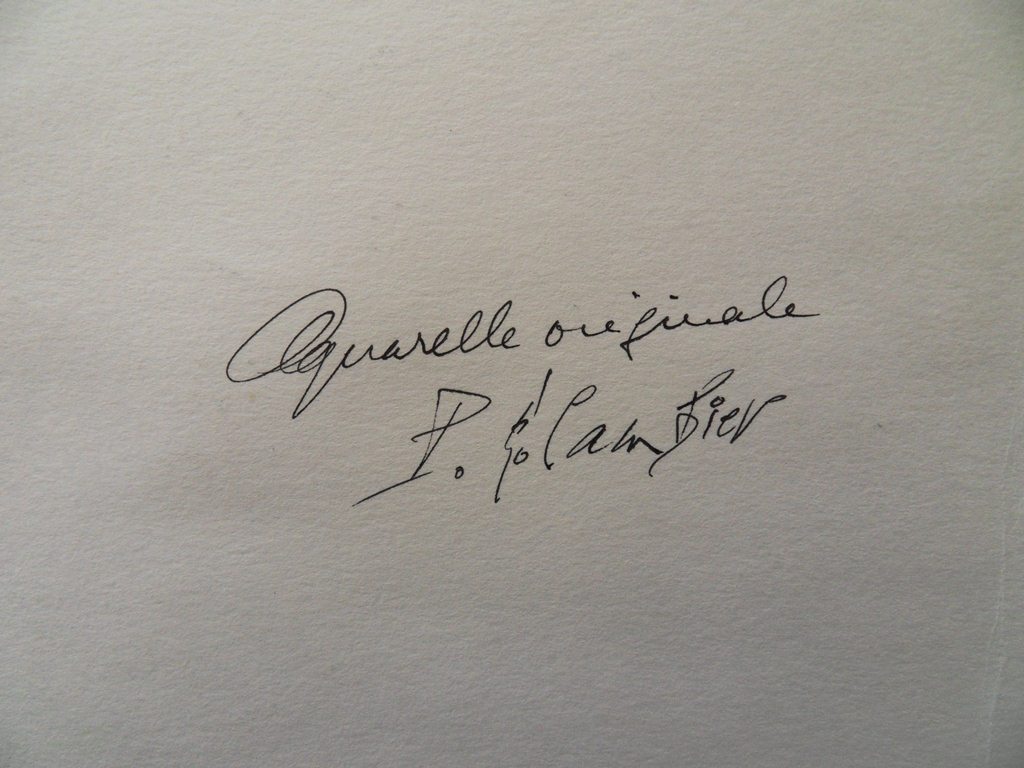 Aquarelle originale
P. Cambier